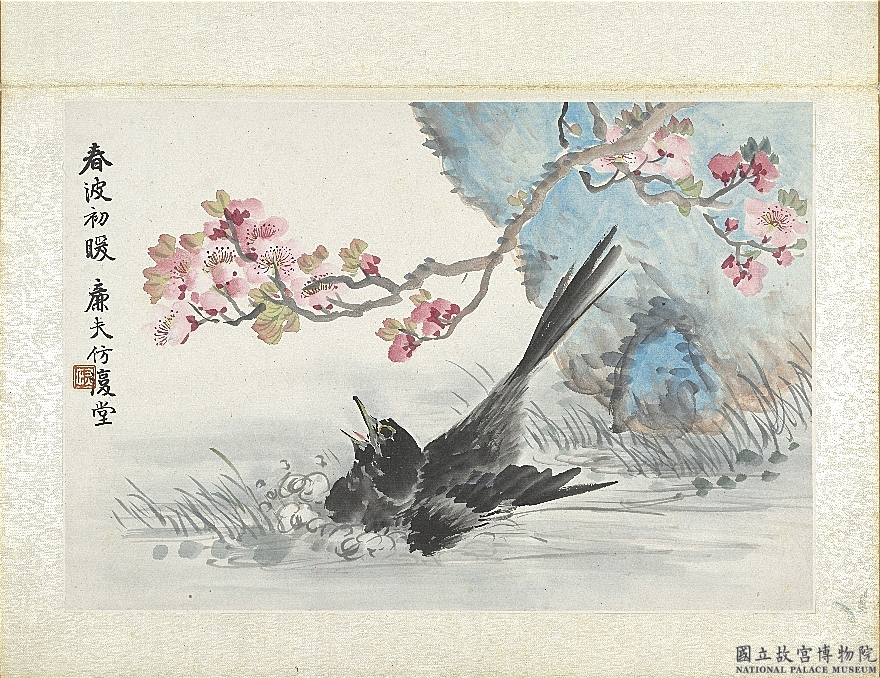 春波初暖 廉夫仿復堂
國立故宮博物院
NATIONAL PALACE MUSEUM